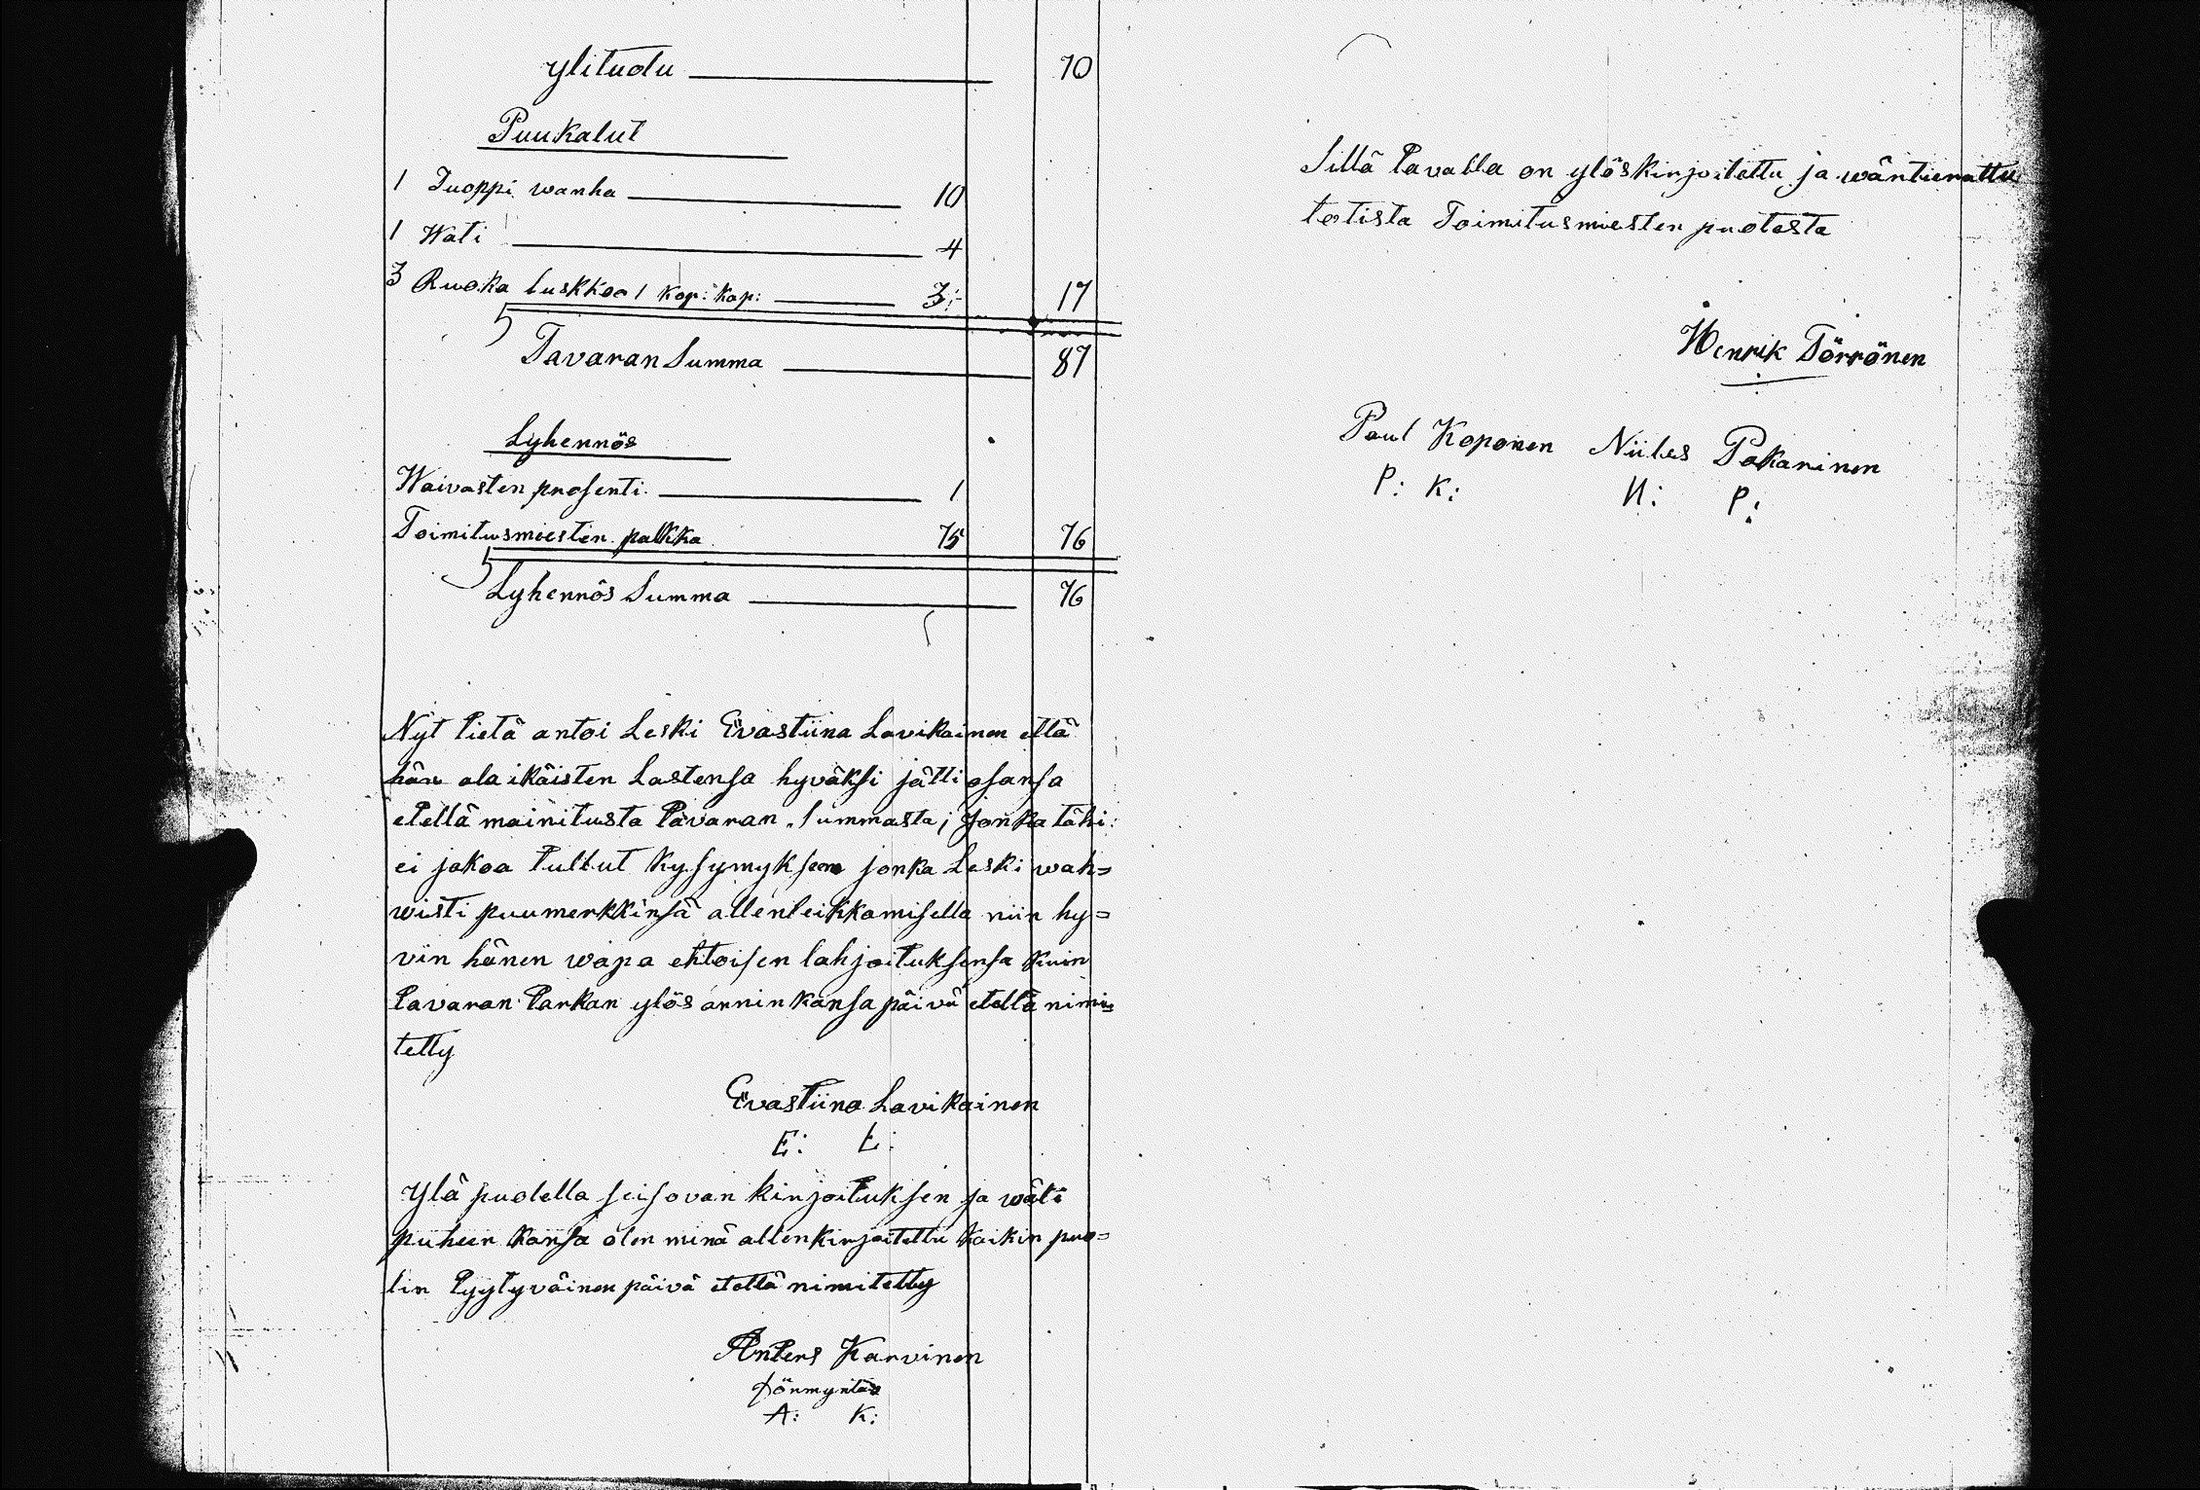 ylituotu 70
Puukalut
1 Tuoppi wanha 10
1 Wati 4
3 Ruoka luskkoa 1 kop: kap: 3:- 17
Tavaran Summa 87
Lyhennös
Waivasten prosenti 1
Toimitusmiesten palkka 75 76
Lyhennös Summa 76
Nyt tietä antoi Leski Evastiina Lavikainen että
hän ala ikäisten Lastensa hyväksi jätti osansa
etellä mainitusta tavaran Summasta; Jonka tähi:
ei jakoa tullut kysymykseen jonka Leski wah=
wisti puumerkkinsä allenleikkamisella niin hy=
vin hänen wapa ehtoisen lahjoituksensa kuin
tavaran tarkan ylös annin kansa päivä etellä nimi=
tetty
Evastiina Lavikainen
E: L:
Ylä puolella seisovan kirjoituksen ja wäli
puheen kansa olen minä allenkirjoitettu kaikin puo=
lin tyytyväinen päivä etellä nimitetty
Anters Karvinen
A: K:
Sillä tavalla on ylöskirjoitettu ja wäntierattu
totista Toimitusmiesten puolesta
Henrik Törrönen
Paul Koponen Niiles Pakarinen
P: K: N: P: